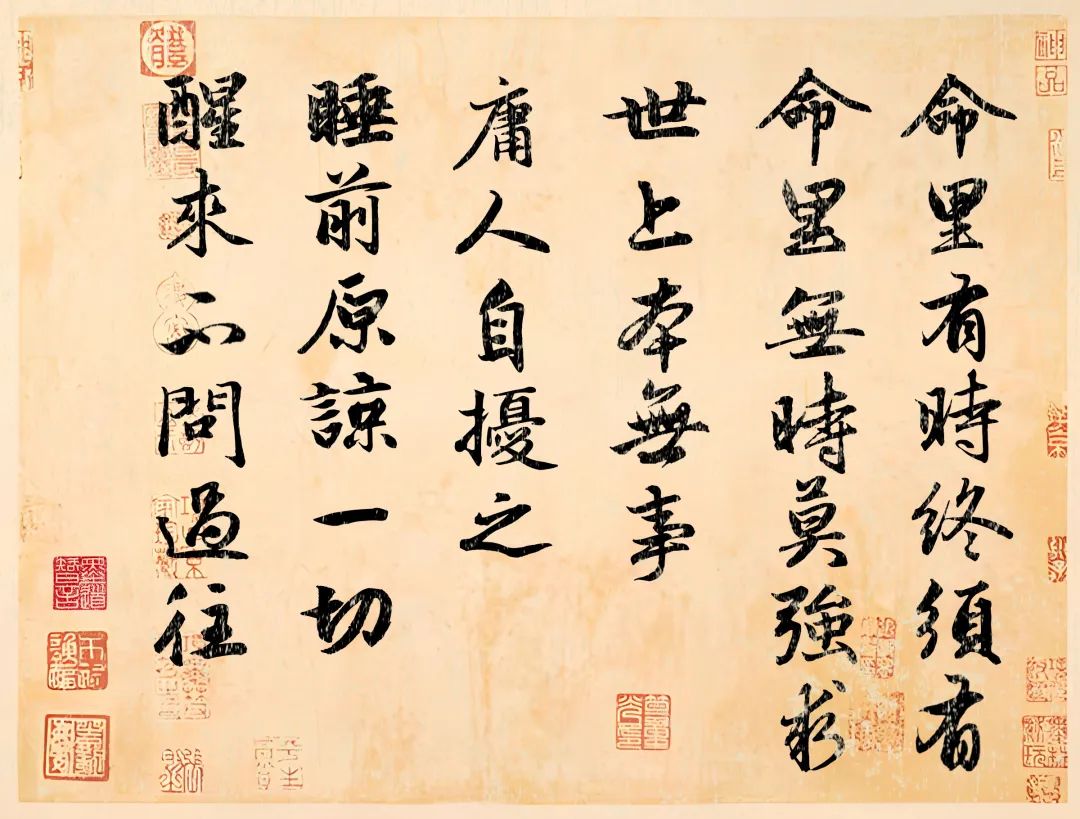 命里有時終須有
命里無時莫強求
世上本無事
庸人自擾之
睡前原諒一切
醒來不問過往